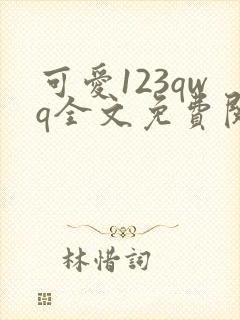 可愛123qw
q全文免費閱
林惜詞